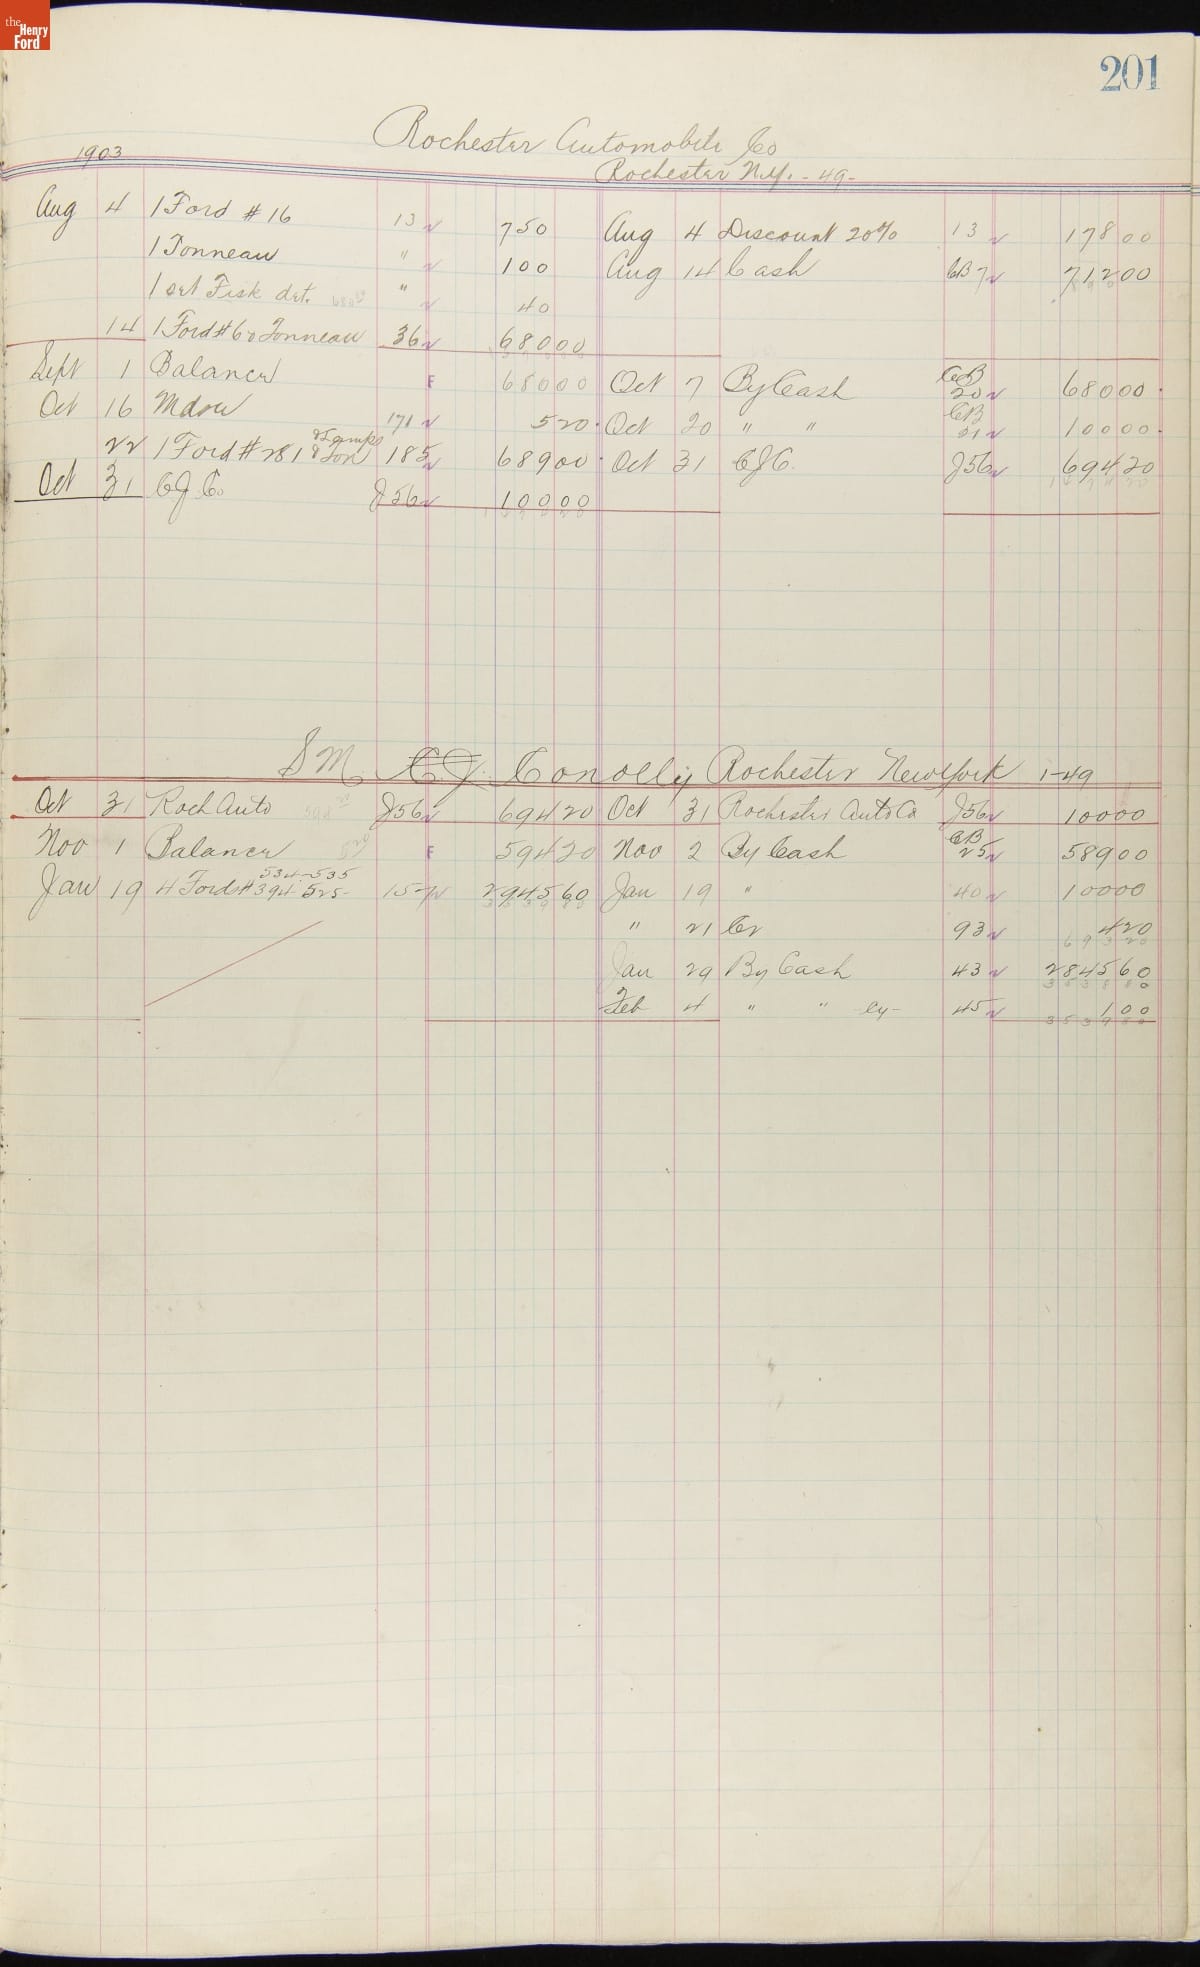 the Henry Ford
201
Rochester Automobile Co
1903
Rochester N.Y. - 49 -
Aug 4 1 Ford #16 13 750 Aug 4 Discount 20% 13 178 00
1 Tonneau " 100 Aug 14 Cash CB 7 712 00
1 set Fisk det. " 40
14 1 Ford #60 Tonneau 36 680 00
Sept 1 Balance F 680 00 Oct 7 By Cash CB 20 680 00
Oct 16 Mdse 171 5 20 Oct 20 " " CB 21 100 00
22 1 Ford #281 & Lamps & Ton 185 689 00 Oct 31 CJC. J56 694 20
Oct 31 CJ Co J56 100 00
S M C J Conolly Rochester New York 1-49
Oct 31 Roch Auto J56 694 20 Oct 31 Rochester Auto Co J56 100 00
Nov 1 Balance F 594 20 Nov 2 By Cash CB 25 589 00
Jan 19 4 Ford # 394-525- 534-535 157 2945 60 Jan 19 " 40 100 00
" 21 Cr 93 4 20
Jan 29 By Cash 43 2845 60
Feb 4 " " 45 1 00